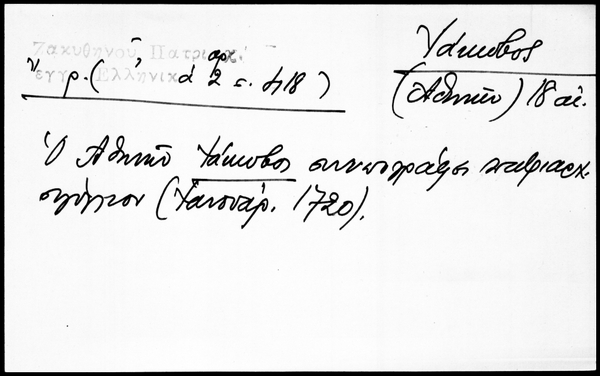 Ζακυθηνού, Πατριαρχ.
έγγρ. Ἑλληνικ
ἀρ. 2 σ. 418)
Ἰάκωβος
(Ἀθηνῶν) 18 αἰ.
Ὁ Ἀθηνῶν Ἰάκωβος συνυπογράφει πατριαρχ.
(Ἰανουάρ. 1720).